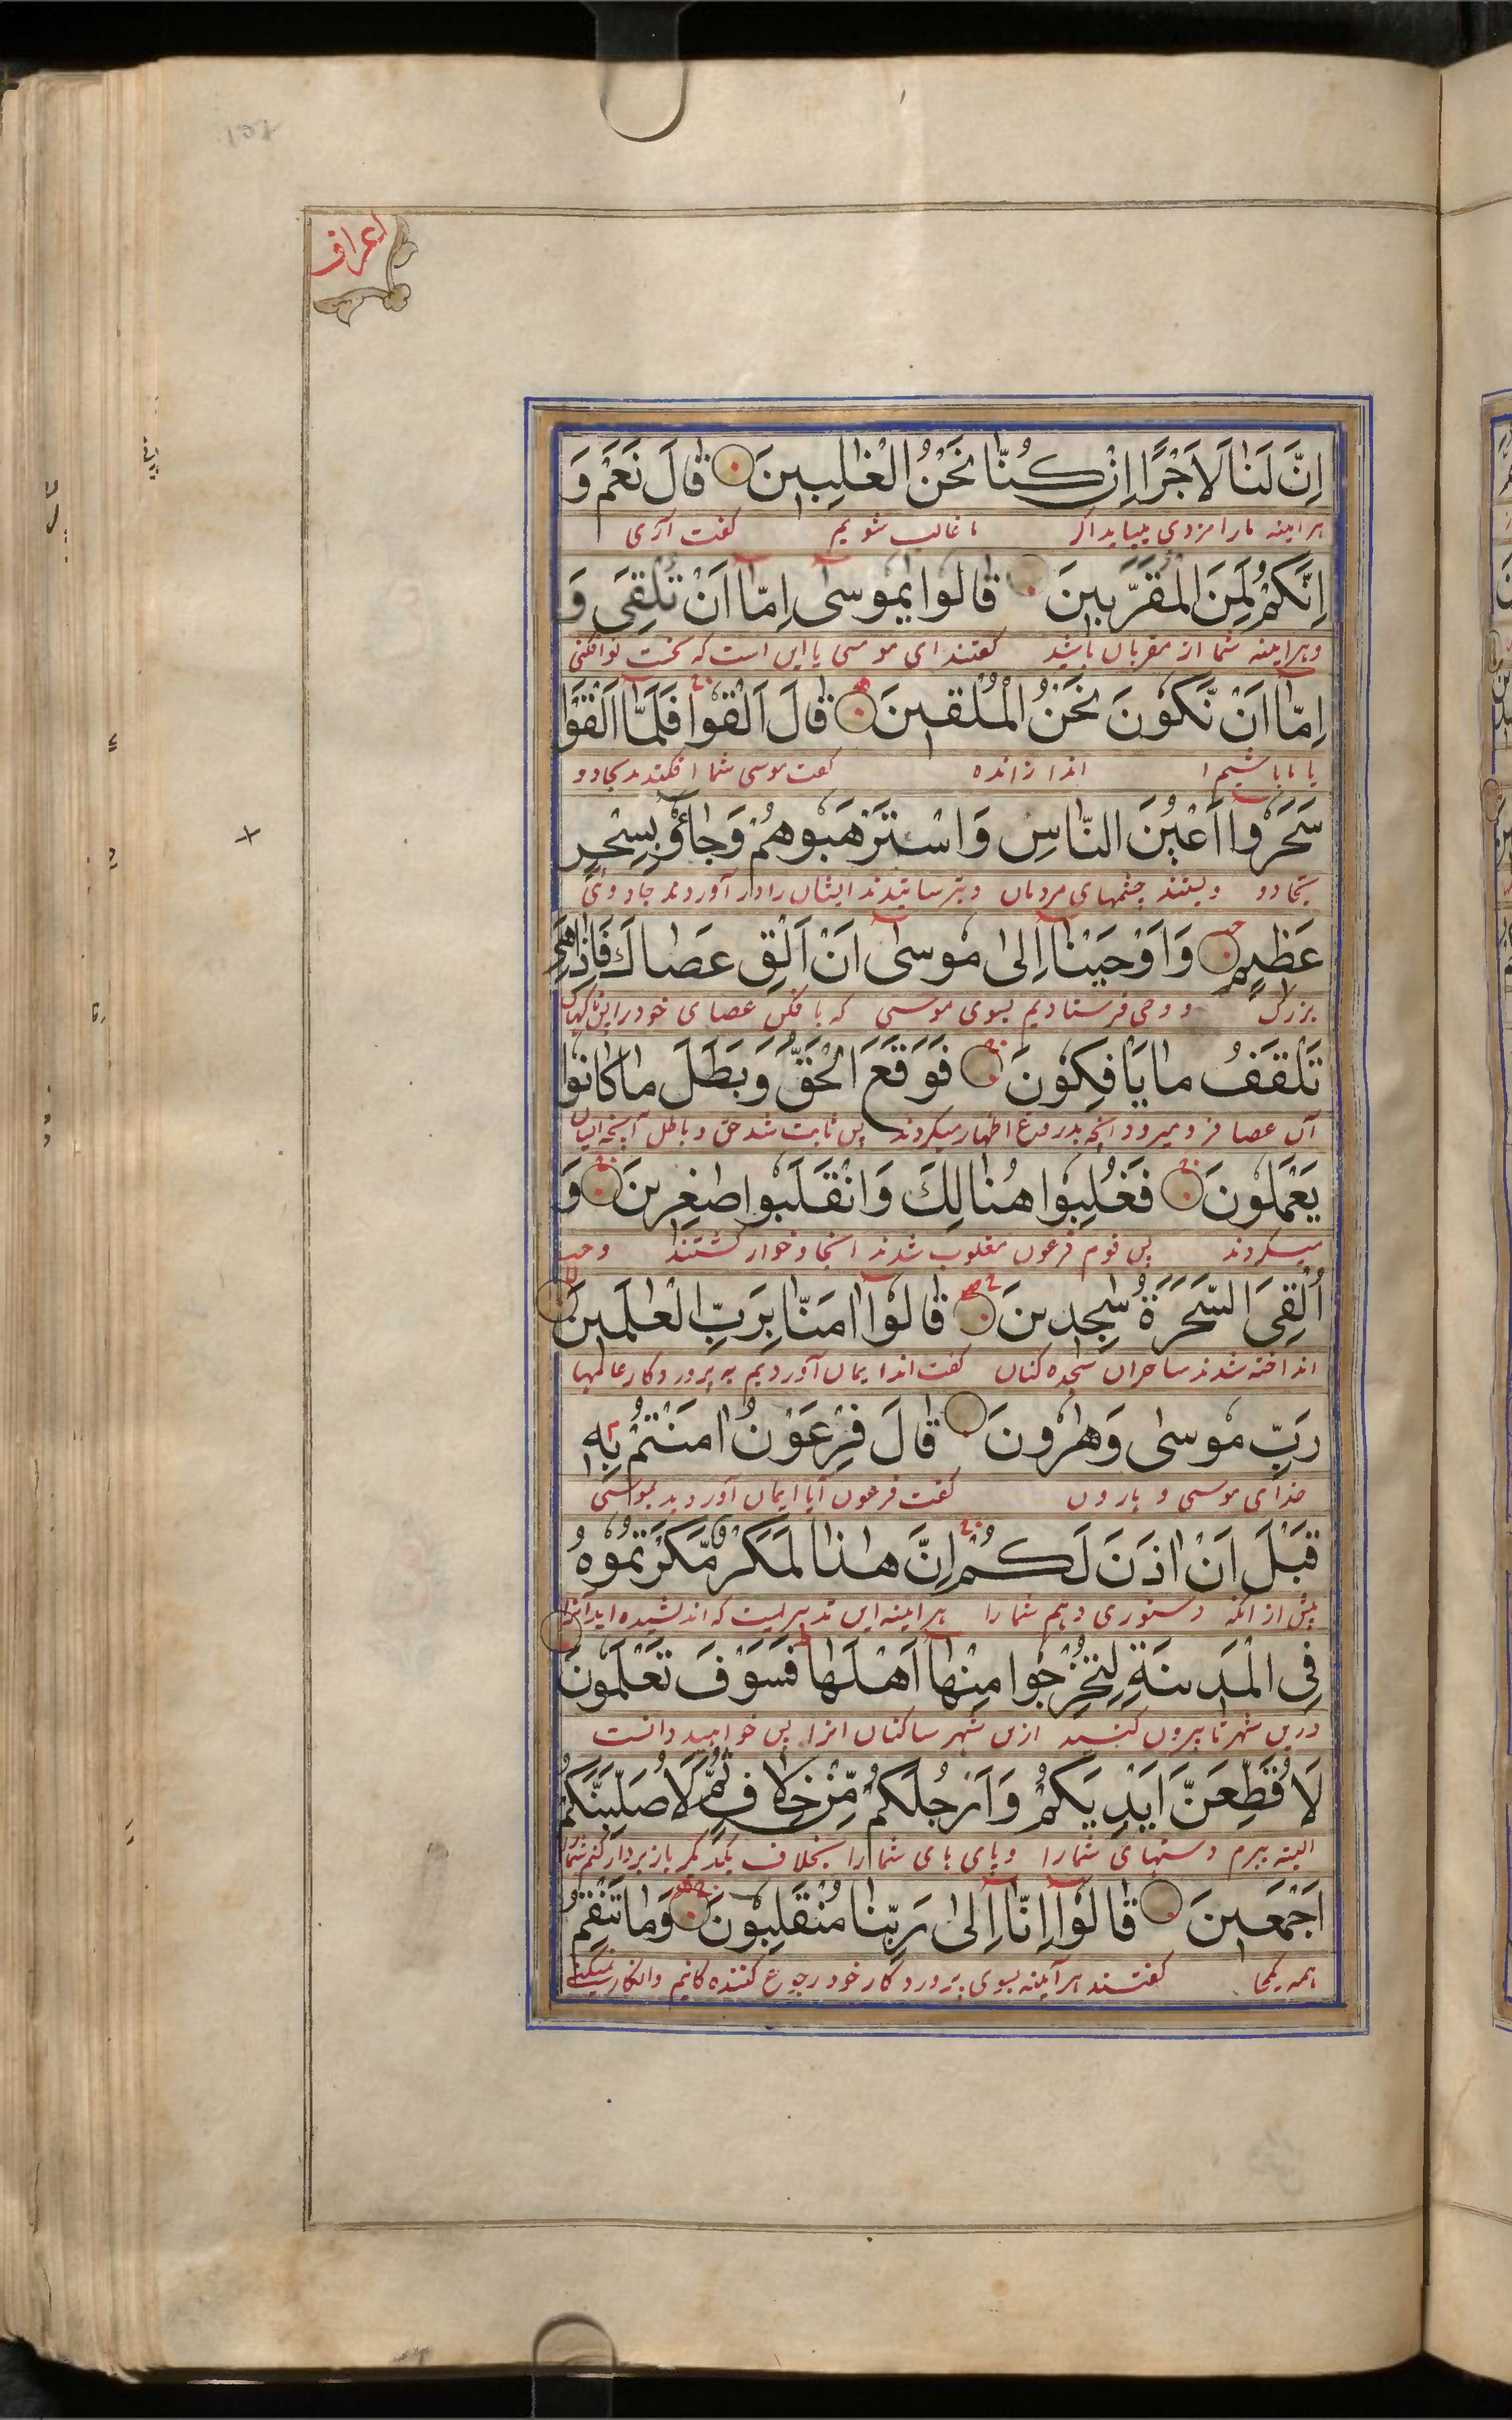 اعراف
اِنَّ لَنَا لَاَجْرًا اِنْ كُنَّا نَحْنُ الْغٰلِبِينَ قَالَ نَعَمْ وَ
هر اینه مارا مزدی میباید اگر ما غالب شویم گفت آری
اِنَّكُمْ لَمِنَ الْمُقَرَّبِينَ قَالُوا يٰمُوسٰى اِمَّا اَنْ تُلْقِىَ وَ
و هر اینه شما از مقربان باشید گفتند ای موسی یا این است که نخست تو افکنی
اِمَّا اَنْ نَّكُونَ نَحْنُ الْمُلْقِينَ قَالَ اَلْقُوا فَلَمَّا اَلْقَوْا
یا ما باشیم اندازانده گفت موسی شما افکنید بجادو
سَحَرُوا اَعْيُنَ النَّاسِ وَاسْتَرْهَبُوهُمْ وَجَاؤُ بِسِحْرٍ
چشمهای مردمان و بترسانیدند ایشان را و آوردند جادوئی
عَظِيمٍ وَاَوْحَيْنَا اِلىٰ مُوسٰى اَنْ اَلْقِ عَصَاكَ فَاِذَا هِىَ
بزرگ و وحی فرستادیم بسوی موسی که بافکن عصای خود را پس ناگهان
تَلْقَفُ مَا يَاْفِكُونَ فَوَقَعَ الْحَقُّ وَبَطَلَ مَا كَانُوا
آن عصا فرو میبرد انچه بدروغ اظهار میکردند پس ثابت شد حق و باطل آنچه ایشان
يَعْمَلُونَ فَغُلِبُوا هُنَالِكَ وَانْقَلَبُوا صٰغِرِينَ وَ
میکردند پس قوم فرعون مغلوب شدند انجا و خوار گشتند و
اُلْقِىَ السَّحَرَةُ سٰجِدِينَ قَالُوا اٰمَنَّا بِرَبِّ الْعٰلَمِينَ
انداخته شدند ساحران سجده کنان گفت اند ایمان آوردیم به پروردکار عالمها
رَبِّ مُوسٰى وَهٰرُونَ قَالَ فِرْعَوْنُ اٰمَنْتُمْ بِهِ
خدای موسی و هارون گفت فرعون آیا ایمان آوردید بموسی
قَبْلَ اَنْ اٰذَنَ لَكُمْ اِنَّ هٰذَا لَمَكْرٌ مَّكَرْتُمُوهُ
پیش از انکه دستوری دهم شمارا هر اینه این تدبیریست که اندیشیده اید آنرا
فِى الْمَدِينَةِ لِتُخْرِجُوا مِنْهَا اَهْلَهَا فَسَوْفَ تَعْلَمُونَ
درین شهر تا بیرون کنید ازین شهر ساکنان انرا پس خواهید دانست
لَاُقَطِّعَنَّ اَيْدِيَكُمْ وَاَرْجُلَكُمْ مِّنْ خِلَافٍ ثُمَّ لَاُصَلِّبَنَّكُمْ
البته ببرم دستهای شمارا و پای های شمارا بخلاف یکدیگر باز بردار کنم شمارا
اَجْمَعِينَ قَالُوا اِنَّا اِلىٰ رَبِّنَا مُنْقَلِبُونَ وَمَا تَنْقِمُ
همه یکجا گفتند هر آینه بسوی پروردکار خود رجوع کننده کانیم و انکار نمیکنی